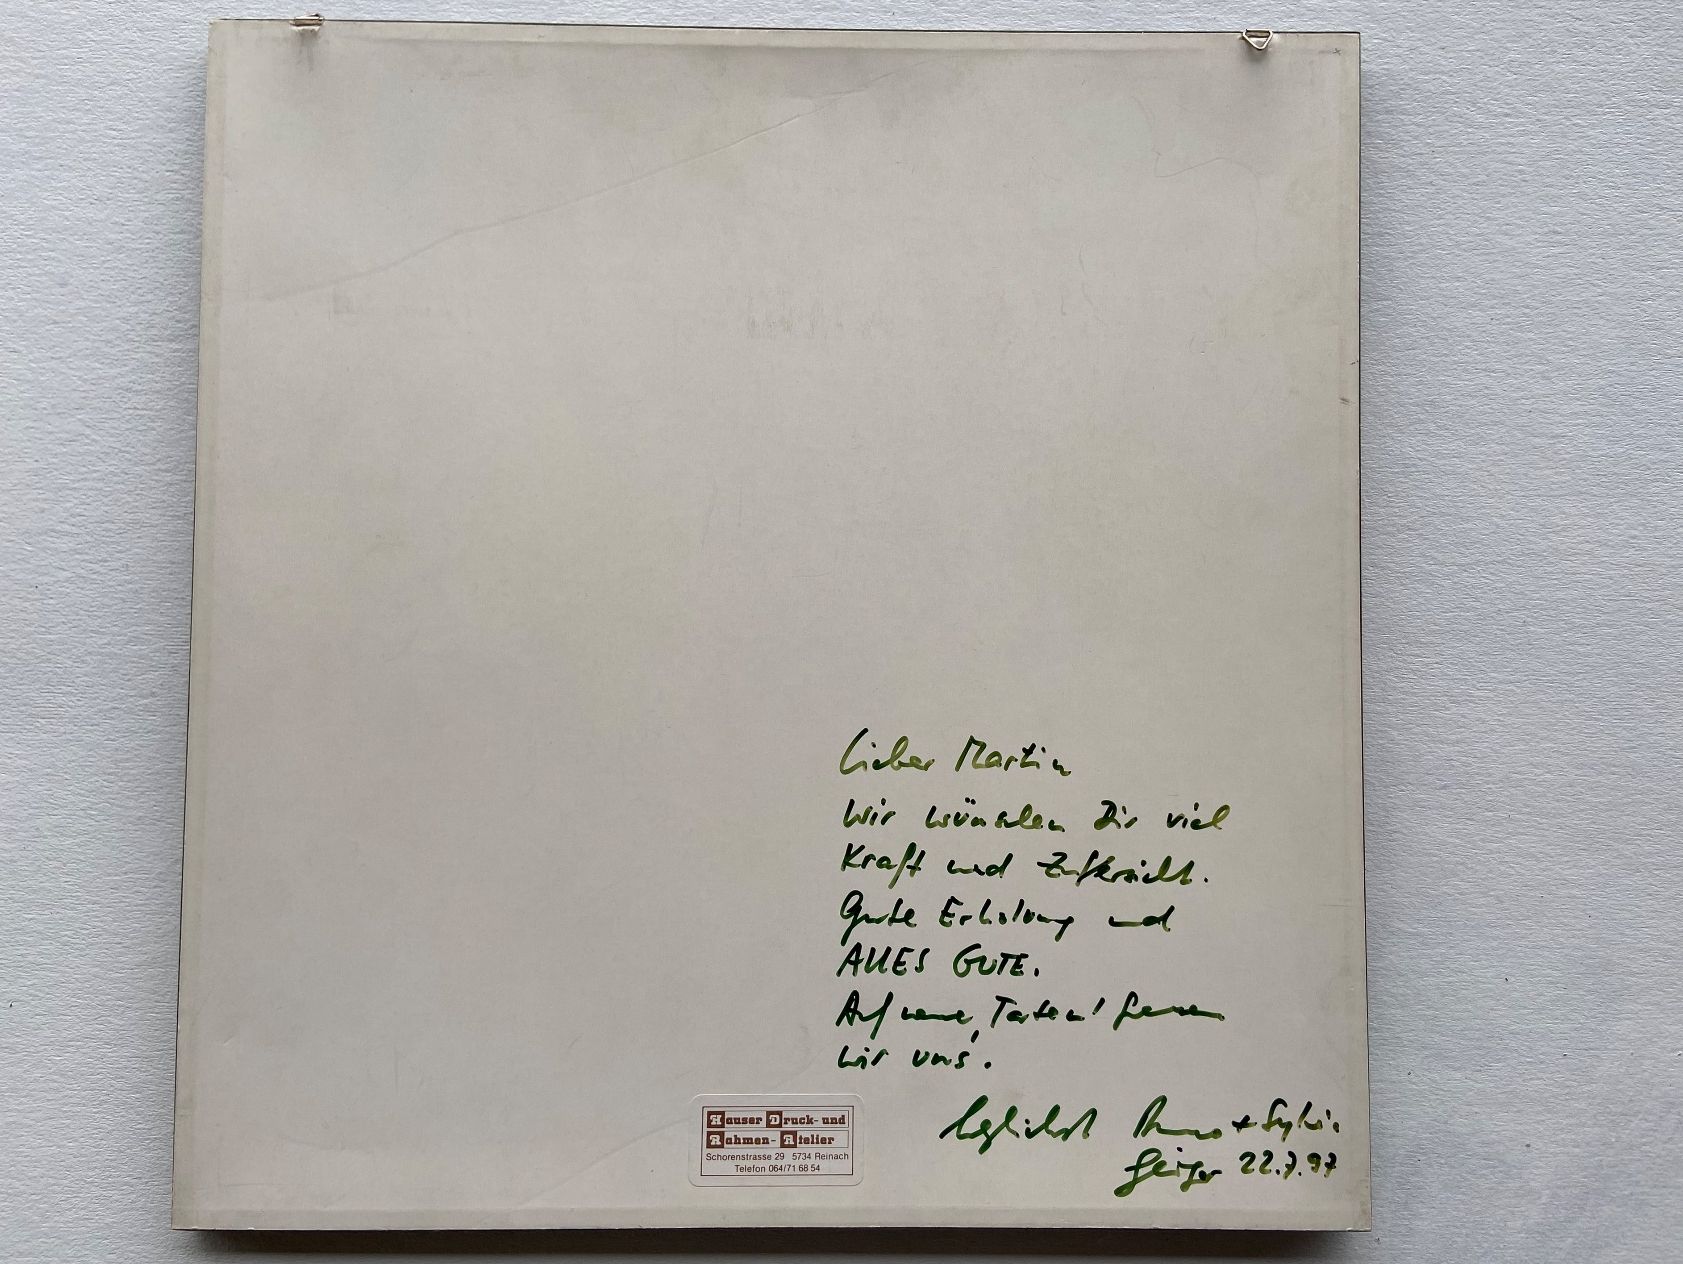 Lieber Martin
Wir wünschen Dir viel
Kraft und Zuversicht.
Gute Erholung und
ALLES GUTE.
Auf neue Taten! freuen
wir uns.
Herzlichst Bruno + Sylvia
Geiger 22.7.97
Hauser Druck- und
Rahmen- Atelier
Schorenstrasse 29 5734 Reinach
Telefon 064/71 68 54